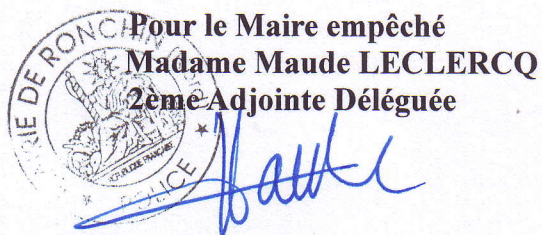 Pour le Maire empêché
Madame Maude LECLERCQ
2ème Adjointe Déléguée
MAIRIE DE RONCHIN
POLICE
REPUBLIQUE FRANÇAISE